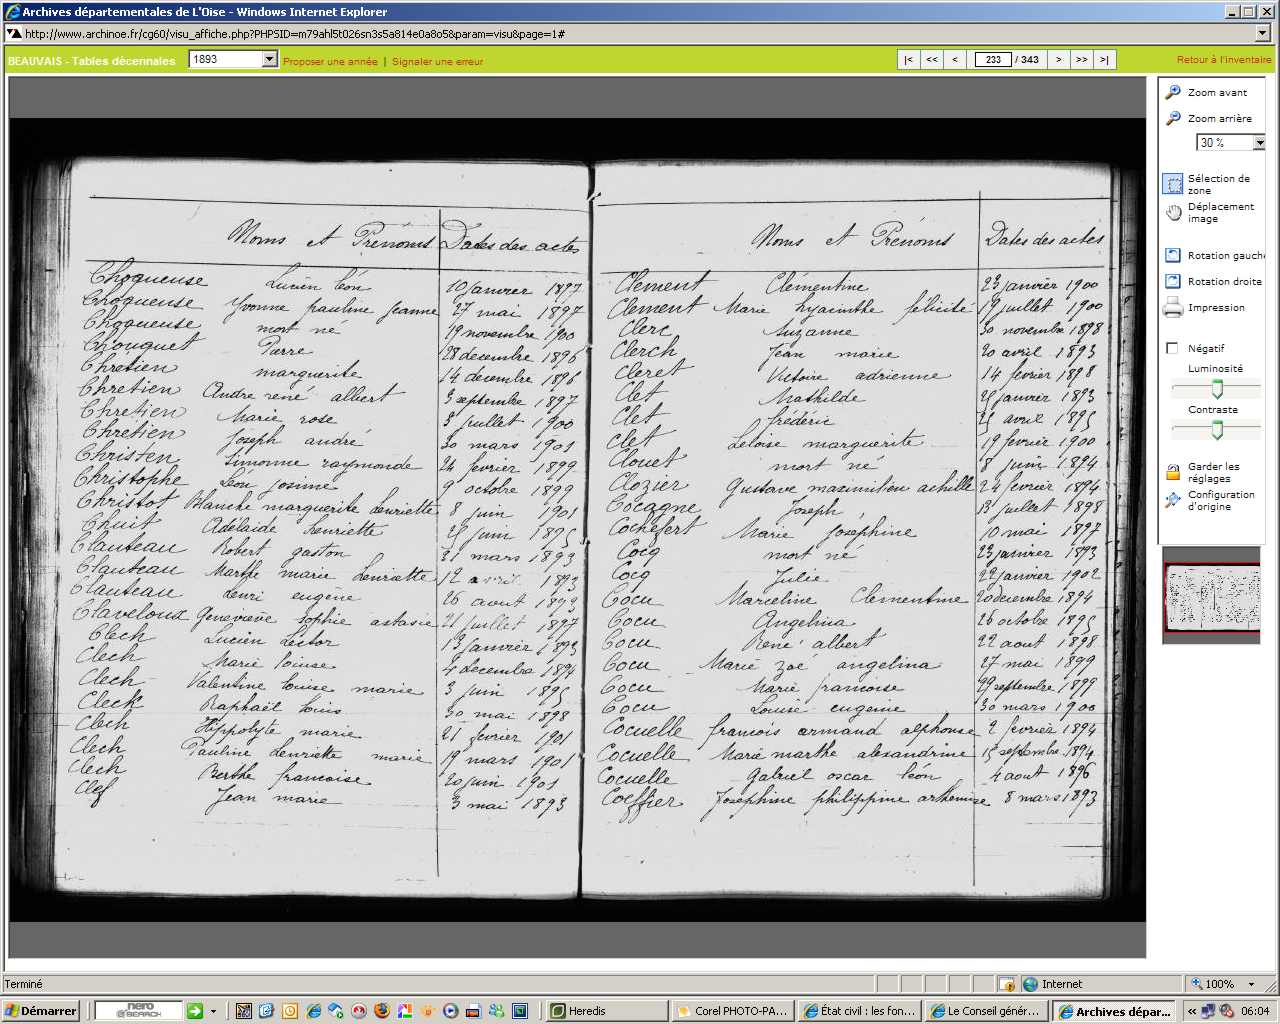 Archives départementales de L'Oise - Windows Internet Explorer
http://www.archinoe.fr/cg60/visu_affiche.php?PHPSID=m79ahl5t026sn3s5a814e0a8o5&param=visu&page=1#
BEAUVAIS - Tables décennales 1893 Proposer une année | Signaler une erreur |< << < 233 / 343 > >> >| Retour à l'inventaire
Noms et Prénoms Dates des actes
Choqueuse Lucien Léon 10 janvier 1897
Choqueuse Yvonne pauline jeanne 27 mai 1897
Choqueuse mort né 19 novembre 1900
Chouquet Pierre 28 decembre 1896
Chretien marguerite 14 decembre 1896
Chretien Andre rené albert 3 septembre 1897
Chretien Marie rose 3 juillet 1900
Chretien Joseph andre 30 mars 1901
Christen Simonne raymonde 24 fevrier 1899
Christophe Léon 9 octobre 1899
Christot Blanche marguerite henriette 8 juin 1901
Chuit Adélaide henriette juin 1895
Clauteau Robert gaston 31 mars 1893
Clauteau Marthe marie henriette 12 avril 1893
Clauteau henri eugène 26 aout
Claveloux Geneviève sophie 21 juillet 1897
Clech Lucien 13 janvier 1893
Clech Marie louise 4 decembre 1894
Clech Valentine louise marie 3 juin 1895
Cleck Raphaël louis 30 mai 1898
Clech Hippolyte marie 21 fevrier 1901
Clech Pauline henriette marie 19 mars 1901
Clech Berthe francoise 20 juin 1901
Clef Jean marie 3 mai 1893
Noms et Prénoms Dates des actes
Clement Clémentine 23 janvier 1900
Clement Marie hyacinthe félicité 19 juillet 1900
Clerc Suzanne 30 novembre 1898
Clerch Jean marie 20 avril 1893
Cleret Victoire adrienne 14 fevrier 1898
Clet Mathilde janvier 1893
Clet frédéric avril 1895
Clet marguerite 19 fevrier 1900
Clouet mort né 8 juin 1894
Clozier Gustave maximilien achille 24 fevrier 1894
Cocagne Joseph 13 juillet 1898
Cochefert Marie Joséphine 10 mai 1897
Cocq mort né 23 janvier 1893
Cocq Julie 22 janvier 1902
Cocu Marceline Clementine 20 decembre 1894
Cocu Angelina 26 octobre 1895
Cocu René albert 22 aout 1898
Cocu Marie zoé angelina 27 mai 1899
Cocu Marie francoise 29 septembre 1899
Cocu Louise eugenie 30 mars 1900
Cocuelle francois armand alphonse 2 fevrier 1894
Cocuelle Marie marthe alexandrine 15 septembre 1894
Cocuelle Gabriel oscar léon 4 aout 1896
Coeffier Josephine philippine arthemise 8 mars 1893
Zoom avant
Zoom arrière
30 %
Sélection de
zone
Déplacement
image
Rotation gauche
Rotation droite
Impression
Négatif
Luminosité
Contraste
Garder les
réglages
Configuration
d'origine
Terminé Internet 100%
Démarrer nero SEARCH Heredis Corel PHOTO-PA... État civil : les fon... Le Conseil génér... Archives dépar... 06:04